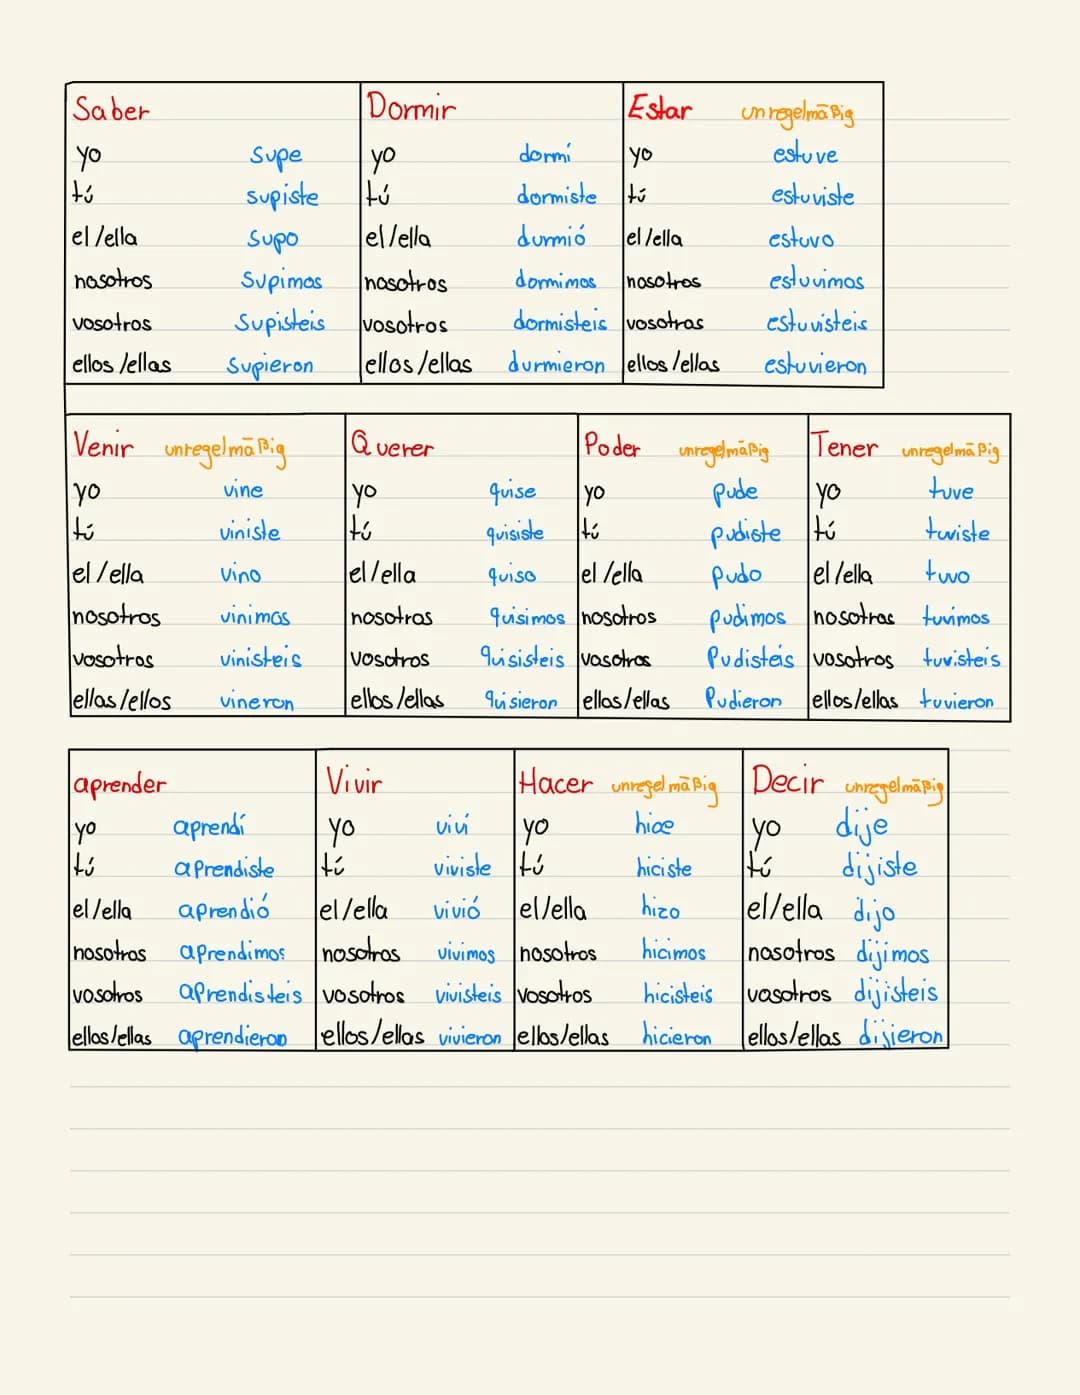 Saber Dormir Estar unregelmäßig
yo supe yo dormí yo estuve
tú supiste tú dormiste tú estuviste
el/ella supo el/ella durmió el/ella estuvo
nosotros supimos nosotros dormimos nosotros estuvimos
vosotros supisteis vosotros dormisteis vosotros estuvisteis
ellos/ellas supieron ellos/ellas durmieron ellos/ellas estuvieron
Venir unregelmäßig Querer Poder unregelmäßig Tener unregelmäßig
yo vine yo quise yo pude yo tuve
tú viniste tú quisiste tú pudiste tú tuviste
el/ella vino el/ella quiso el/ella pudo el/ella tuvo
nosotros vinimos nosotros quisimos nosotros pudimos nosotros tuvimos
vosotros vinisteis vosotros quisisteis vosotros pudisteis vosotros tuvisteis
ellas/ellos vineron ellos/ellas quisieron ellas/ellas pudieron ellos/ellas tuvieron
aprender Vivir Hacer unregelmäßig Decir unregelmäßig
yo aprendí yo viví yo hice yo dije
tú aprendiste tú viviste tú hiciste tú dijiste
el/ella aprendió el/ella vivió el/ella hizo el/ella dijo
nosotros aprendimos nosotros vivimos nosotros hicimos nosotros dijimos
vosotros aprendisteis vosotros vivisteis vosotros hicisteis vosotros dijisteis
ellos/ellas aprendieron ellos/ellas vivieron ellos/ellas hicieron ellos/ellas dijieron